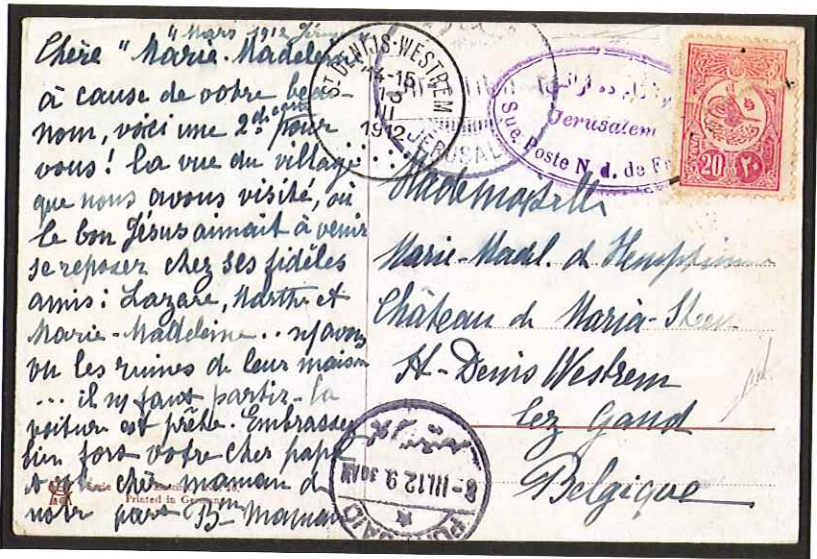 Mars 1912
Chère "Marie-Madeleine"
à cause de votre beau
nom, voici une 2d carte pour
vous! la vue du village
que nous avons visité, où
le bon Jésus aimait à venir
se reposer chez ses fidèles
amis: Lazare, Marthe et
Marie-Madeleine.. ns avons
vu les ruines de leur maison
... il ns faut partir - la
voiture est prête. Embrassez
bien fort votre cher papa
et votre chère maman de
notre part Bne Maman
Printed in Germany
ST DENIJS-WESTREM
14-15
13
III
1912
JERUSALEM
Jerusalem
Suc. Poste N. d. de Fr
20 ٢٠
Mademoiselle
Marie-Madel. de
Château de Maria-
St-Denis Westrem
lez Gand
Belgique
8-III.12 9. AM
PORT SAID